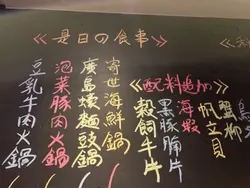 《是日の食事》
寄世海鮮鍋
廣島蠔麵豉鍋
泡菜豚肉火鍋
豆乳牛肉火鍋
《配料追加》
蟹柳
帆立貝
海蝦
黑豚腩片
穀飼牛片